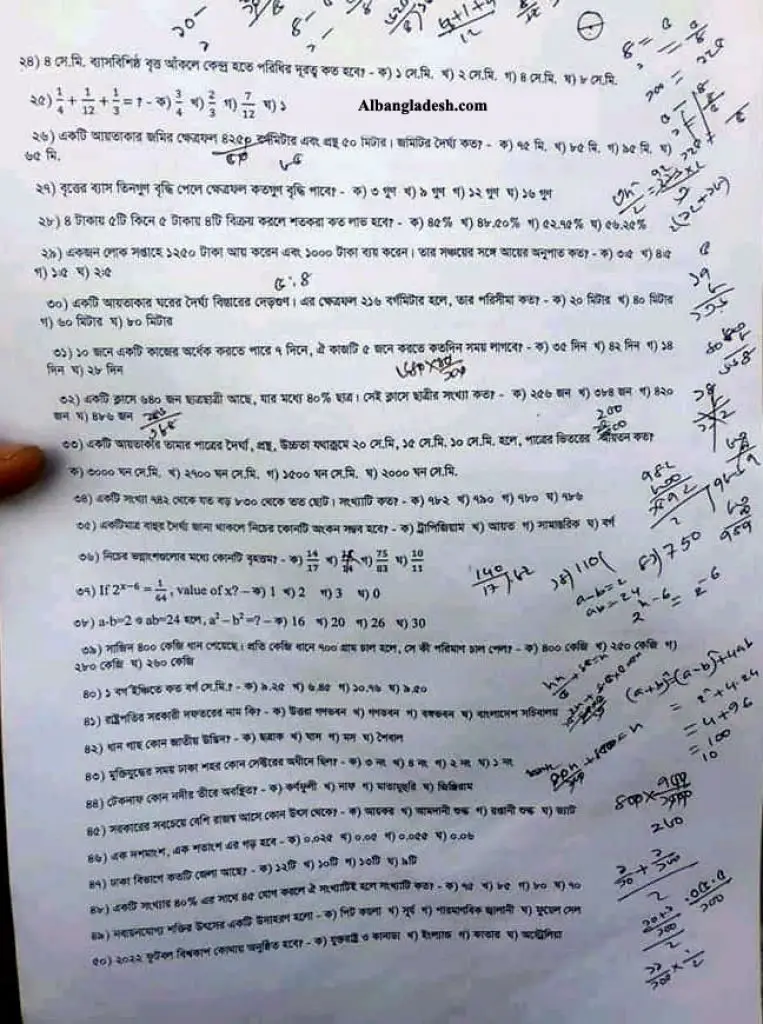 ২৪) ৪ সে.মি. ব্যাসবিশিষ্ট বৃত্ত আঁকলে কেন্দ্র হতে পরিধির দূরত্ব কত হবে? - ক) ১ সে.মি. খ) ২ সে.মি. গ) ৪ সে.মি. ঘ) ৮ সে.মি.
২৫) 1/4 + 1/12 + 1/3 = ? - ক) 3/4 খ) 2/3 গ) 7/12 ঘ) ১
Albangladesh.com
২৬) একটি আয়তাকার জমির ক্ষেত্রফল ৪২৫০ বর্গমিটার এবং প্রস্থ ৫০ মিটার। জমিটির দৈর্ঘ্য কত? - ক) ৭৫ মি. খ) ৮৫ মি. গ) ৯৫ মি. ঘ)
৬৫ মি.
২৭) বৃত্তের ব্যাস তিনগুণ বৃদ্ধি পেলে ক্ষেত্রফল কতগুণ বৃদ্ধি পাবে? - ক) ৩ গুণ খ) ৯ গুণ গ) ১২ গুণ ঘ) ১৬ গুণ
২৮) ৪ টাকায় ৫টি কিনে ৫ টাকায় ৪টি বিক্রয় করলে শতকরা কত লাভ হবে? - ক) ৪৫% খ) ৪৮.৫০% গ) ৫২.৭৫% ঘ) ৫৬.২৫%
২৯) একজন লোক সপ্তাহে ১২৫০ টাকা আয় করেন এবং ১০০০ টাকা ব্যয় করেন। তার সঞ্চয়ের সঙ্গে আয়ের অনুপাত কত? - ক) ৩:৫ খ) ৪:৫
গ) ১:৫ ঘ) ২:৫
৩০) একটি আয়তাকার ঘরের দৈর্ঘ্য বিস্তারের দেড়গুণ। এর ক্ষেত্রফল ২১৬ বর্গমিটার হলে, তার পরিসীমা কত? - ক) ২০ মিটার খ) ৪০ মিটার
গ) ৬০ মিটার ঘ) ৮০ মিটার
৩১) ১০ জনে একটি কাজের অর্ধেক করতে পারে ৭ দিনে, ঐ কাজটি ৫ জনে করতে কতদিন সময় লাগবে? - ক) ৩৫ দিন খ) ৪২ দিন গ) ১৪
দিন ঘ) ২৮ দিন
৩২) একটি ক্লাসে ৬৪০ জন ছাত্রছাত্রী আছে, যার মধ্যে ৪০% ছাত্র। সেই ক্লাসে ছাত্রীর সংখ্যা কত? - ক) ২৫৬ জন খ) ৩৮৪ জন গ) ৪২০
জন ঘ) ৪৮৬ জন
৩৩) একটি আয়তাকার তামার পাত্রের দৈর্ঘ্য, প্রস্থ, উচ্চতা যথাক্রমে ২০ সে.মি, ১৫ সে.মি, ১০ সে.মি. হলে, পাত্রের ভিতরের আয়তন কত?
ক) ৩০০০ ঘন সে.মি. খ) ২৭০০ ঘন সে.মি. গ) ১৫০০ ঘন সে.মি. ঘ) ২০০০ ঘন সে.মি.
৩৪) একটি সংখ্যা ৭৪২ থেকে যত বড় ৮৩০ থেকে তত ছোট। সংখ্যাটি কত? - ক) ৭৮২ খ) ৭৯০ গ) ৭৮০ ঘ) ৭৮৬
৩৫) একটিমাত্র বাহুর দৈর্ঘ্য জানা থাকলে নিচের কোনটি অংকন সম্ভব হবে? - ক) ট্রাপিজিয়াম খ) আয়ত গ) সামান্তরিক ঘ) বর্গ
৩৬) নিচের ভগ্নাংশগুলোর মধ্যে কোনটি বৃহত্তম? - ক) 14/17 গ) 75/83 ঘ) 10/11
৩৭) If 2^(x-6) = 1/64, value of x? - ক) 1 খ) 2 গ) 3 ঘ) 0
৩৮) a-b=2 ও ab=24 হলে, a² - b² =? - ক) 16 খ) 20 গ) 26 ঘ) 30
৩৯) সাজিন ৪০০ কেজি ধান পেয়েছে। প্রতি কেজি ধানে ৭০০ গ্রাম চাল হলে, সে কী পরিমাণ চাল পেল? - ক) ৪০০ কেজি খ) ২৫০ কেজি গ)
২৮০ কেজি ঘ) ২৬০ কেজি
৪০) ১ বর্গ ইঞ্চিতে কত বর্গ সে.মি.? - ক) ৯.২৫ খ) ৬.৪৫ গ) ১০.৭৬ ঘ) ৯.৫০
৪১) রাষ্ট্রপতির সরকারী দফতরের নাম কি? - ক) উত্তরা গণভবন খ) গণভবন গ) বঙ্গভবন ঘ) বাংলাদেশ সচিবালয়
৪২) ধান গাছ কোন জাতীয় উদ্ভিদ? - ক) ছত্রাক খ) ঘাস গ) মস ঘ) শৈবাল
৪৩) মুক্তিযুদ্ধের সময় ঢাকা শহর কোন সেক্টরের অধীনে ছিল? - ক) ৩ নং খ) ৪ নং গ) ২ নং ঘ) ১ নং
৪৪) টেকনাফ কোন নদীর তীরে অবস্থিত? - ক) কর্ণফুলী খ) নাফ গ) মাতামুহুরি ঘ) ঝিঞ্জিরাম
৪৫) সরকারের সবচেয়ে বেশি রাজস্ব আসে কোন উৎস থেকে? - ক) আয়কর খ) আমদানী শুল্ক গ) রপ্তানী শুল্ক ঘ) ভ্যাট
৪৬) এক দশমাংশ, এক শতাংশ এর গড় হবে - ক) ০.০২৫ খ) ০.০৫ গ) ০.০৫৫ ঘ) ০.০৬
৪৭) ঢাকা বিভাগে কতটি জেলা আছে? - ক) ১২টি খ) ১০টি গ) ১৩টি ঘ) ৯টি
৪৮) একটি সংখ্যার ৪০% এর সাথে ৪৫ যোগ করলে ঐ সংখ্যাটিই হলে সংখ্যাটি কত? - ক) ৭৫ খ) ৮৫ গ) ৮০ ঘ) ৭০
৪৯) নবায়নযোগ্য শক্তির উৎসের একটি উদাহরণ হলো - ক) পিট কয়লা খ) সূর্য গ) পারমাণবিক জ্বালানী ঘ) ফুয়েল সেল
৫০) ২০২২ ফুটবল বিশ্বকাপ কোথায় অনুষ্ঠিত হবে? - ক) যুক্তরাষ্ট্র ও কানাডা খ) ইংল্যান্ড গ) কাতার ঘ) অস্ট্রেলিয়া
৫:৪
a-b=2
ab=24
(a+b)²=(a-b)²+4ab
= 2²+4.24
= 4+96
= 100
10